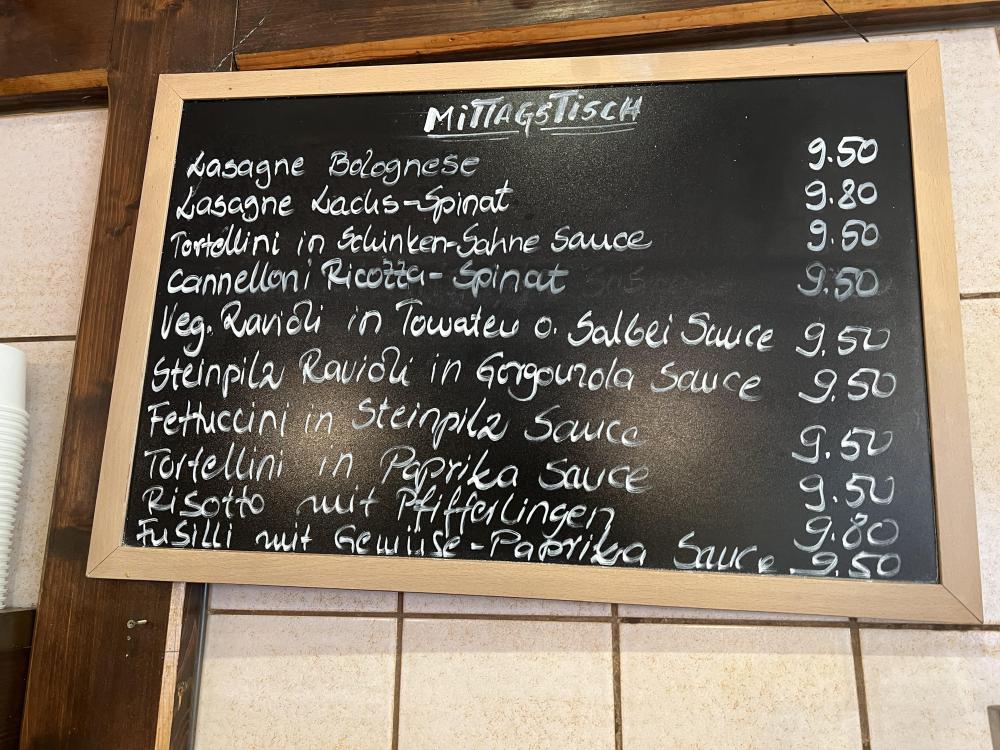 MITTAGSTISCH
Lasagne Bolognese 9.50
Lasagne Lachs-Spinat 9.80
Tortellini in Schinken-Sahne Sauce 9.50
Cannelloni Ricotta-Spinat 9.50
Veg. Ravioli in Tomaten o. Salbei Sauce 9.50
Steinpilz Ravioli in Gorgonzola Sauce 9.50
Fettuccini in Steinpilz Sauce 9.50
Tortellini in Paprika Sauce 9.50
Risotto mit Pfifferlingen 9.80
Fusilli mit Gemüse-Paprika Sauce 9.50